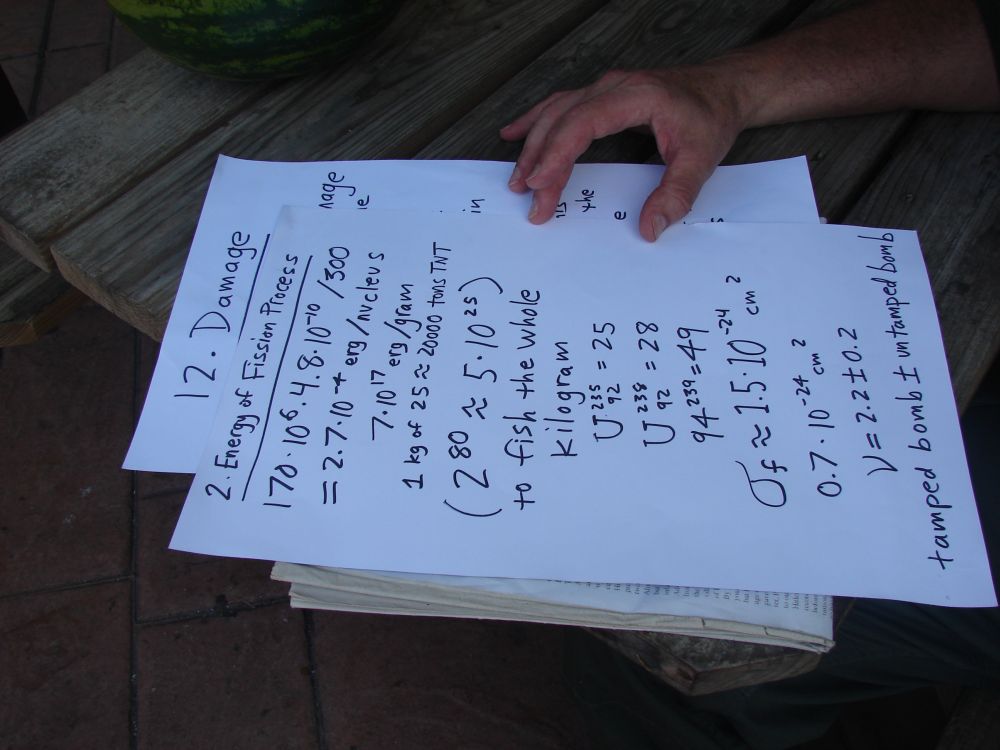 12. Damage
2. Energy of Fission Process
170·10⁶·4.8·10⁻¹⁰/300
= 2.7·10⁻⁴ erg/nucleus
7·10¹⁷ erg/gram
1 kg of 25 ≈ 20000 tons TNT
(2⁸⁰ ≈ 5·10²⁵)
to fish the whole
kilogram
U²³⁵₉₂ = 25
U²³⁸₉₂ = 28
94²³⁹ = 49
σf ≈ 1.5·10⁻²⁴ cm²
0.7·10⁻²⁴ cm²
ν = 2.2 ± 0.2
tamped bomb ± untamped bomb
in
the